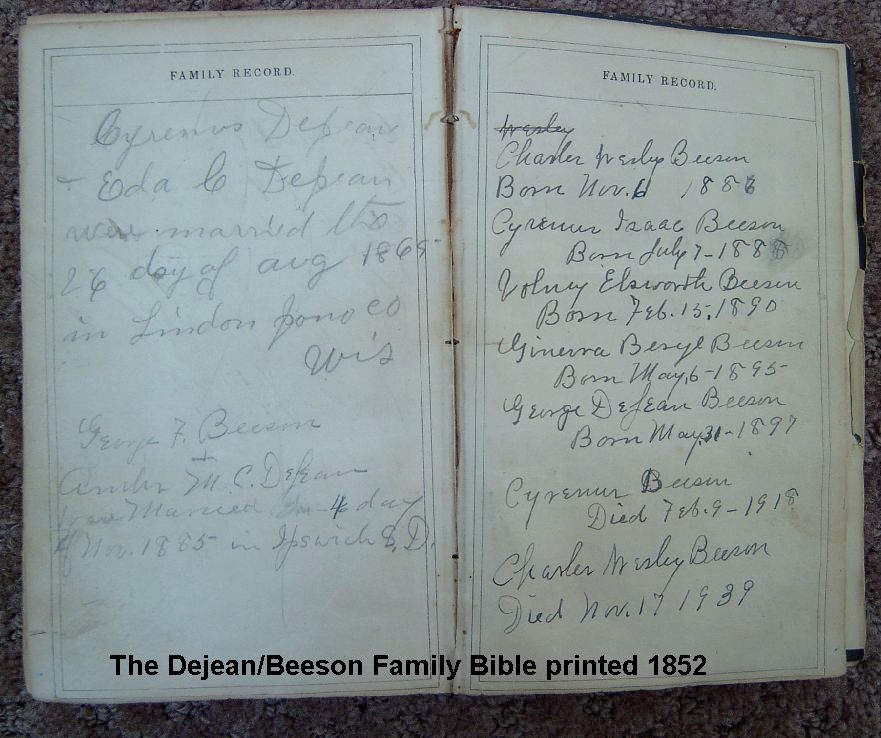 FAMILY RECORD.
Cyrenus DeJean
+ Eda C DeJean
were married this
26 day of aug 1865
in Lindon Juno co
Wis
George F. Beeson
+
M. C. DeJean
were Married the 4 day
of Nov. 1885 in Ipswich S.D.
FAMILY RECORD.
Wesley
Charles Wesley Beeson
Born Nov. 6 1886
Cyrenus Isaac Beeson
Born July 7-1888
Volney Elsworth Beeson
Born Feb. 15, 1890
Ginevra Beryl Beeson
Born May, 6-1895
George DeJean Beeson
Born May, 31-1897
Cyrenus Beeson
Died Feb. 9-1918
Charles Wesley Beeson
Died Nov. 17 1939
The Dejean/Beeson Family Bible printed 1852